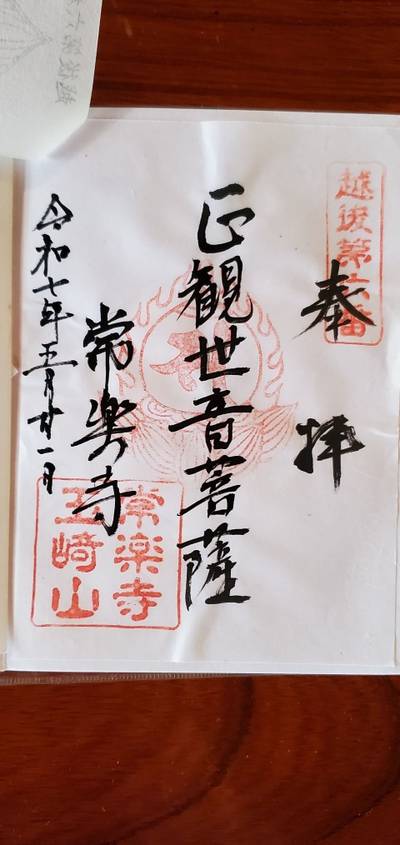 越後第六番
奉拝
正観世音菩薩
常楽寺
令和七年五月廿一日
常楽寺
玉﨑山